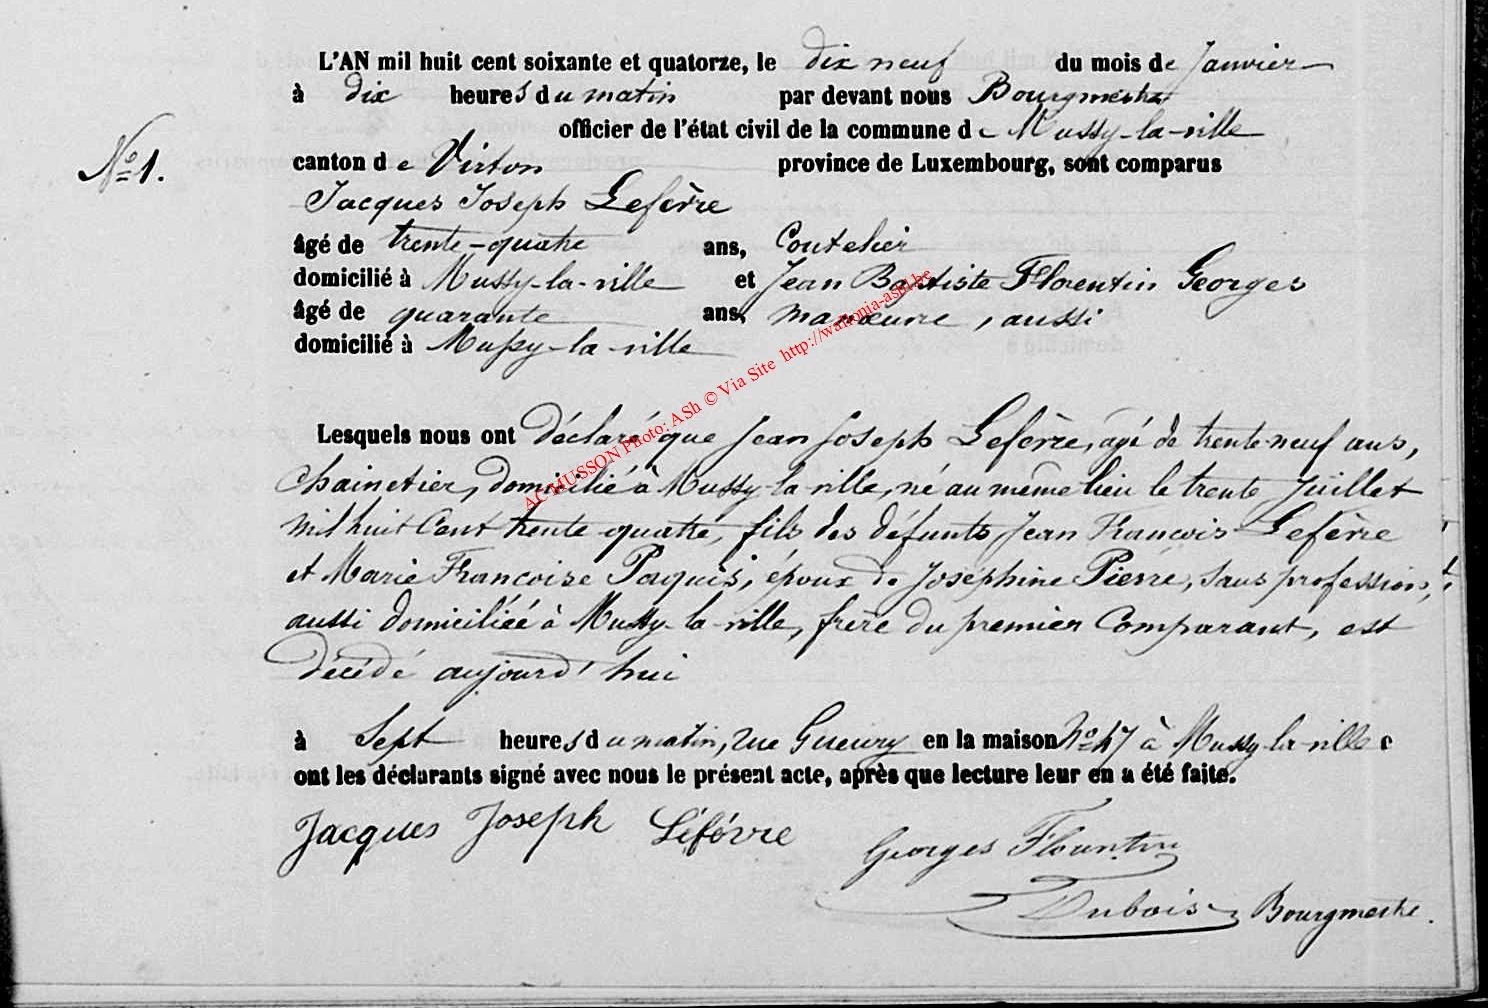 L'AN mil huit cent soixante et quatorze, le dix neuf du mois de Janvier
à dix heures du matin par devant nous Bourgmestre
officier de l'état civil de la commune de Mussy-la-ville
N° 1.
canton de Virton province de Luxembourg, sont comparus
Jacques Joseph Lefèvre
âgé de trente-quatre ans, Coutelier
domicilié à Mussy-la-ville et Jean Baptiste Florentin Georges
âgé de quarante ans, manœuvre, aussi
domicilié à Mussy-la-ville
Lesquels nous ont déclaré que Jean Joseph Lefèvre, agé de trente neuf ans,
chainetier, domicilié à Mussy-la-ville, né au même lieu le trente Juillet
mil huit Cent trente-quatre, fils des défunts Jean François Lefèvre
et Marie Françoise Paquis, époux de Joséphine Pierre, sans profession,
aussi domiciliée à Mussy-la-ville, frère du premier Comparant, est
décédé aujourd'hui
à Sept heures du matin, rue Gueury en la maison N° 47 à Mussy-la-ville e
ont les déclarants signé avec nous le présent acte, après que lecture leur en a été faite.
Jacques Joseph Lefévre
Georges Florentin
Dubois Bourgmestre.
AC MUSSON Photo: ASh © Via Site http://wallonia-asbl.be